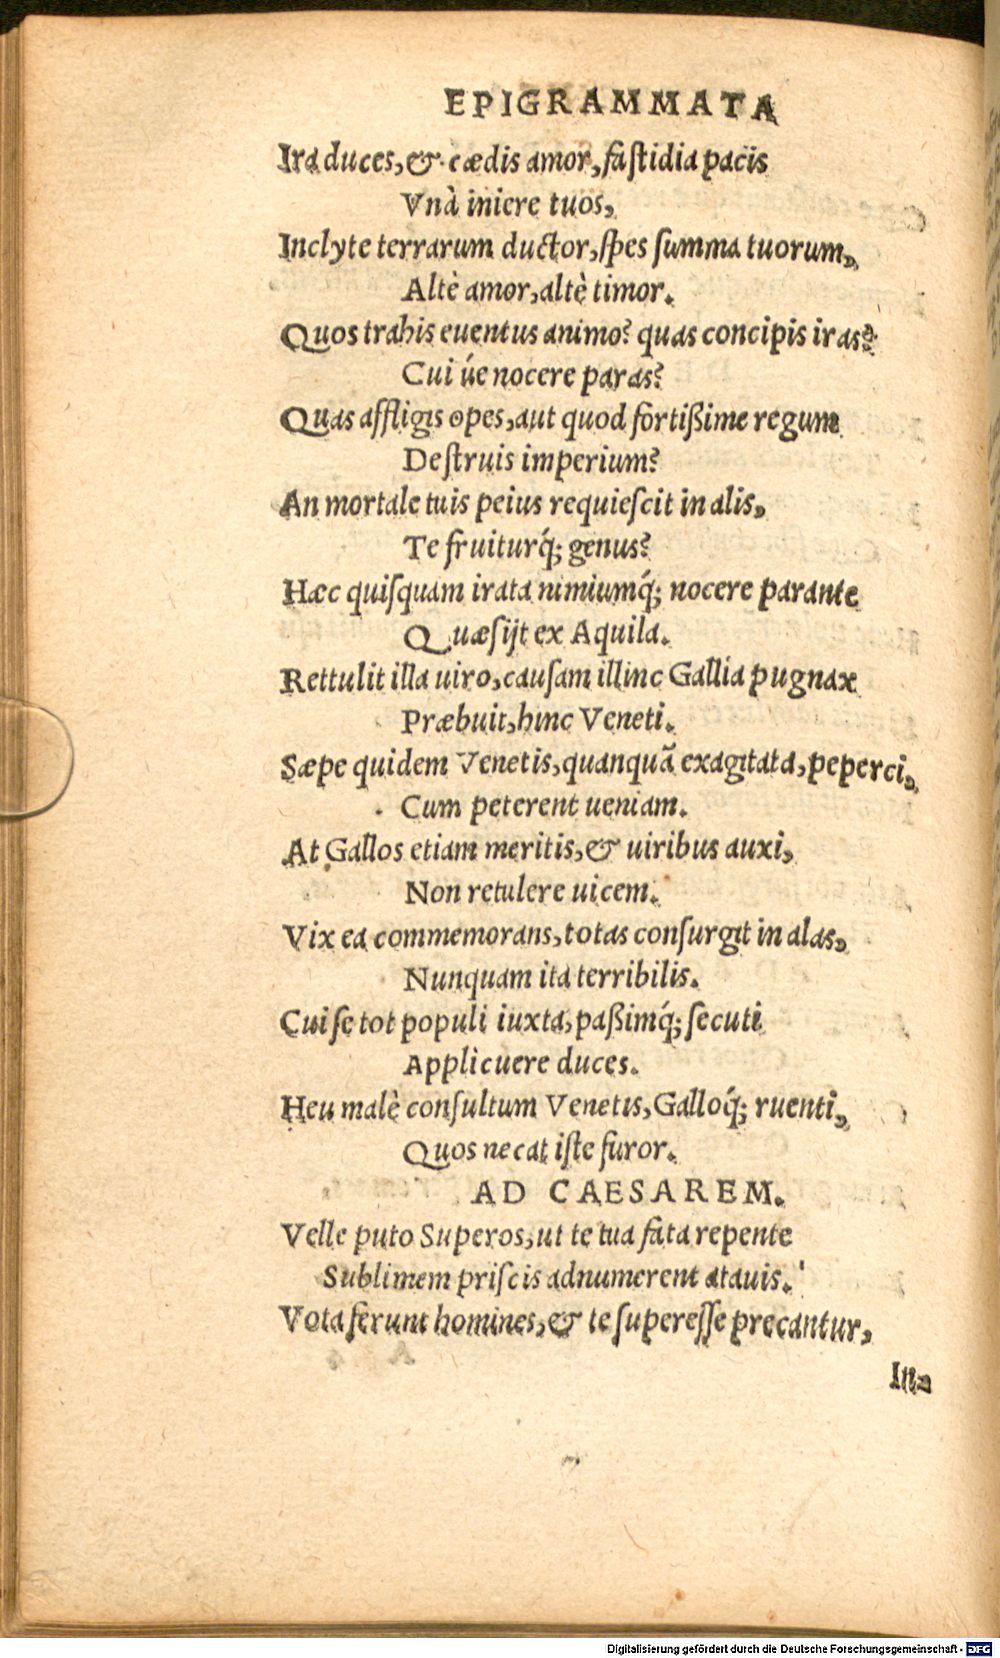 EPIGRAMMATA
Ira duces, & cædis amor, faſtidia pacis
Vnà iniere tuos,
Inclyte terrarum ductor, ſpes ſumma tuorum,
Altè amor, altè timor.
Quos trahis euentus animo? quas concipis iras?
Cui úe nocere paras?
Quas affligis opes, aut quod fortißime regum
Deſtruis imperium?
An mortale tuis peius requieſcit in alis,
Te fruiturq́; genus?
Hæc quiſquam irata nimiumq́; nocere parante
Quæſijt ex Aquila.
Rettulit illa uiro, cauſam illinc Gallia pugnax
Præbuit, hinc Veneti.
Sæpe quidem Venetis, quanquā exagitata, peperci,
Cum peterent ueniam.
At Gallos etiam meritis, & uiribus auxi,
Non retulere uicem.
Vix ea commemorans, totas conſurgit in alas,
Nunquam ita terribilis.
Cui ſe tot populi iuxta, paßimq́; ſecuti
Applicuere duces.
Heu malè conſultum Venetis, Galloq́; ruenti,
Quos necat iſte furor.
AD CAESAREM.
Velle puto Superos, ut te tua fata repente
Sublimem priſcis adnumerent atauis.
Vota ferunt homines, & te ſupereſſe precantur,
Digitalisierung gefördert durch die Deutsche Forschungsgemeinschaft - DFG